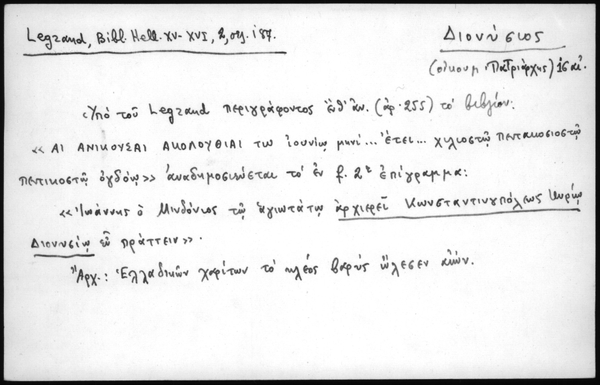 Legrand, Bibl. Hell. XV-XVI, 2, σημ. 187.
Διονύσιος
(οἰκουμ. Πατριάρχης) 16 αἰ.
Ὑπὸ τοῦ Legrand περιγράφοντος ἐνθ' ἀν. (ἀρ. 255) τὸ βιβλίον:
«ΑΙ ΑΝΙΚΟΥΣΑΙ ΑΚΟΛΟΥΘΙΑΙ τω ἰουνίῳ μηνί... ἔτει... χιλιοστῷ πεντακοσιοστῷ
πεντικοστῷ ὀγδόῳ» ἀναδημοσιεύεται τὸ ἐν f. 2 ἐπίγραμμα:
«Ἰωάννης ὁ Μινδόνιος τῷ ἁγιωτάτῳ ἀρχιερεῖ Κωνσταντινουπόλεως Κυρίῳ
Διονυσίῳ εὖ πράττειν».
Ἄρχ.: Ἑλλαδικῶν χαρίτων τὸ κλέος βαρὺς ὤλεσεν αἰών.